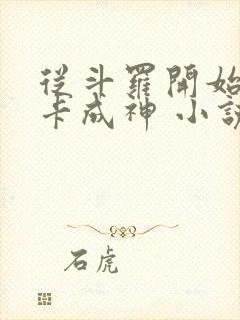 從斗羅開始
卡成神 小說
石虎